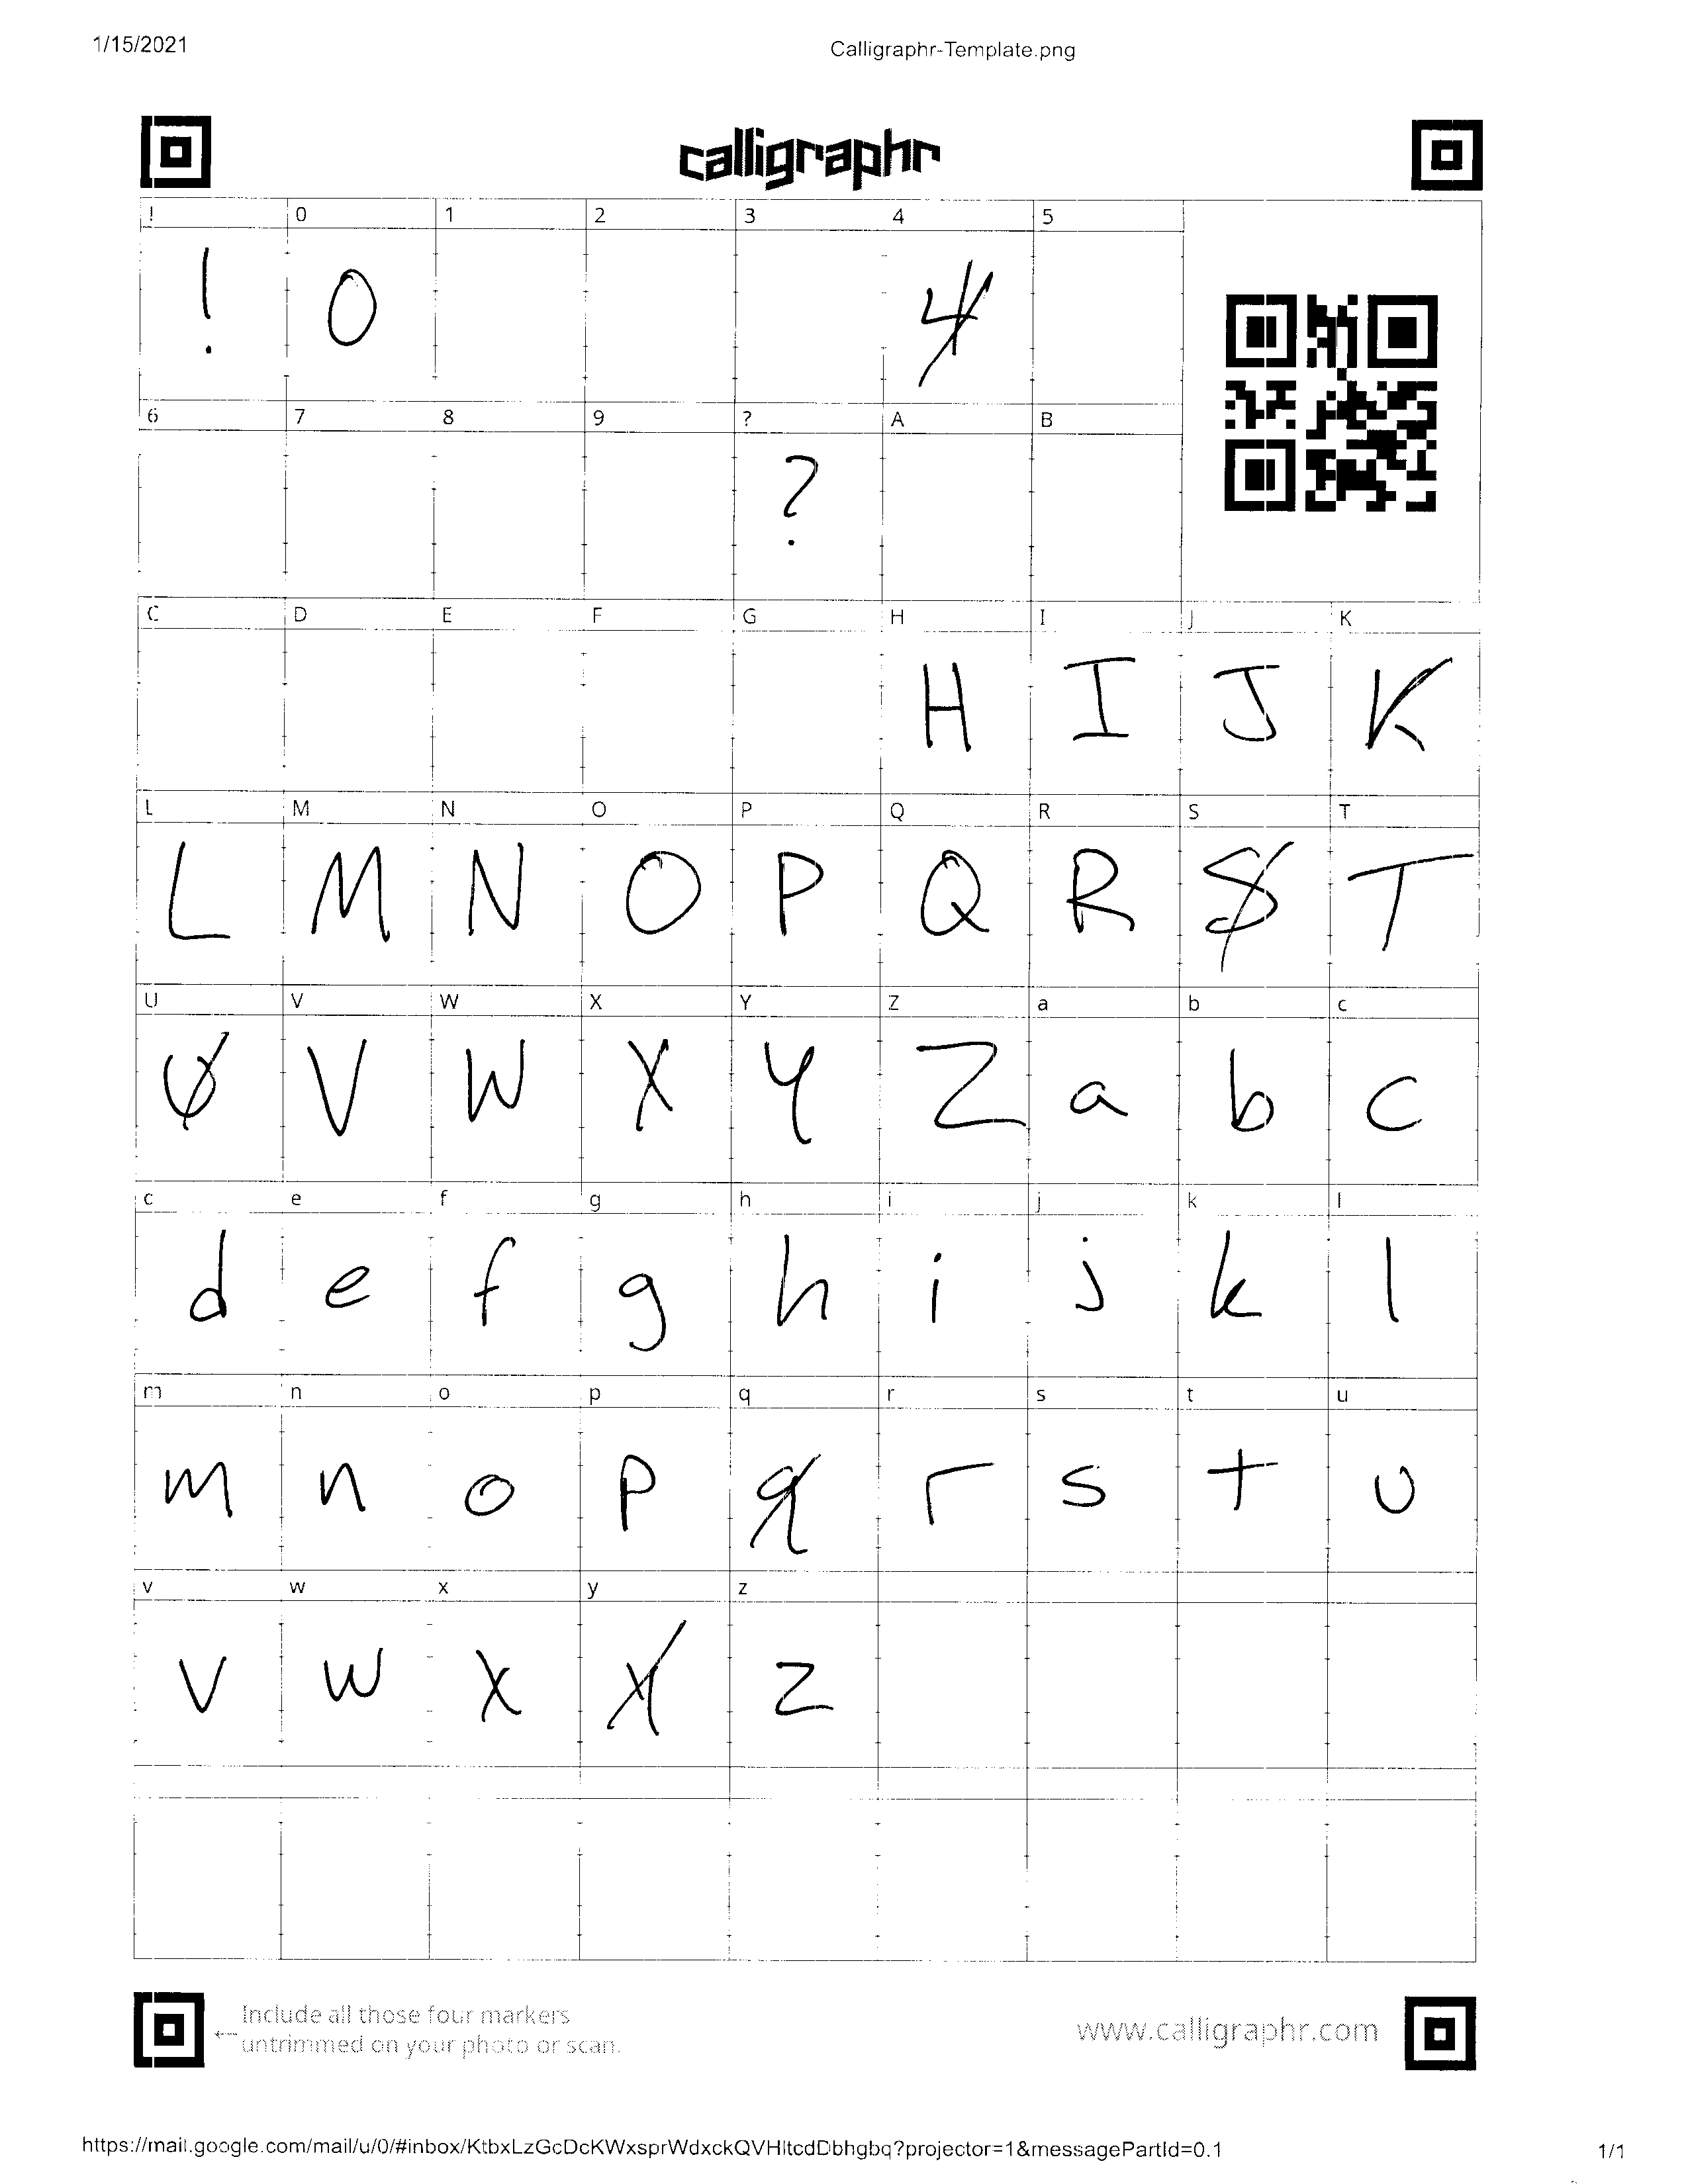 1/15/2021 Calligraphr-Template.png
calligraphr
! 0 1 2 3 4 5
! 0 4
6 7 8 9 ? A B
?
C D E F G H I J K
H I J K
L M N O P Q R S T
L M N O P Q R S T
U V W X Y Z a b c
U V W X Y Z a b c
c e f g h i j k l
d e f g h i j k l
m n o p q r s t u
m n o p q r s t u
v w x y z
v w x x z
Include all those four markers
← untrimmed on your photo or scan.
www.calligraphr.com
https://mail.google.com/mail/u/0/#inbox/KtbxLzGcDcKWxsprWdxckQVHltcdDbhgbq?projector=1&messagePartId=0.1 1/1